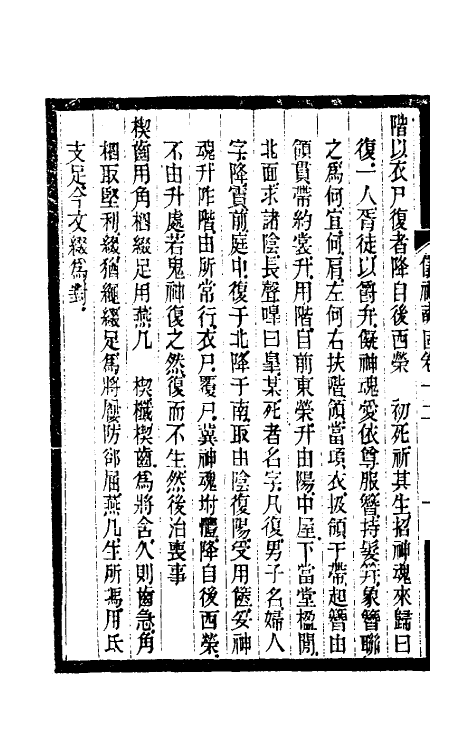 階以衣尸復者降自後西榮　初死祈其生招神魂來歸曰
復一人胥徒以爵弁儗神魂愛依尊服簪持髮笄象簪聯
之為何宜何肩左何右扶階領當項衣扱領于帶起簪由
領貫帶約裳升用階自前東榮升由陽中屋下當堂檻閒
北面求諸陰長聲嘷曰皐某死者名字凡復男子名婦人
字降賓前庭中復于北降于南取由陰復陽受用篋妥神
魂升阼階由所常行衣尸覆尸冀神魂坿體降自後西榮
不由升處若鬼神復之然復而不生然後治喪事
楔齒用角柶綴足用燕几　楔櫼楔齒為將含久則齒急角
柶取堅利綴猶繩綴足為將屨防卻屈燕几生所馮用氐
支足今文綴為對